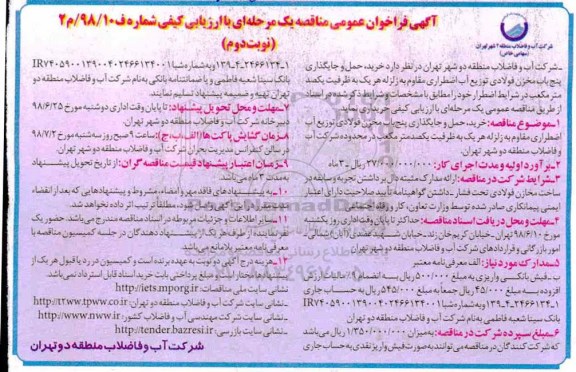 آگهی فراخوان عمومی مناقصه یک مرحله‌ای با ارزیابی کیفی شماره ف۹۸/۱۰/م۲
(نوبت دوم)
شرکت آب و فاضلاب منطقه ۲ شهر تهران
(سهامی خاص)
ـ شرکت آب و فاضلاب منطقه دو شهر تهران در نظر دارد خرید، حمل و جایگذاری
پنج باب مخزن فولادی توزیع آب اضطراری مقاوم به زلزله هر یک به ظرفیت یکصد
متر مکعب در شرایط اضطرار خود را مطابق با مشخصات و شرایط ذکر شده در اسناد
از طریق مناقصه عمومی یک مرحله‌ای با ارزیابی کیفی خریداری نماید.
۱ـ موضوع مناقصه: خرید، حمل و جایگذاری پنج باب مخزن فولادی توزیع آب
اضطراری مقاوم به زلزله هر یک به ظرفیت یکصد متر مکعب در محدوده شرکت آب
و فاضلاب منطقه دو شهر تهران.
۲ـ برآورد اولیه و مدت اجرای کار: ۲۷/۰۰۰/۰۰۰/۰۰۰ ریال ـ ۳ ماه
۳ـ شرایط شرکت در مناقصه: ارائه مدارک مثبته دال بر داشتن تجربه و سابقه در
ساخت مخازن فولادی تحت فشار ـ داشتن گواهینامه تأیید صلاحیت دارای اعتبار
ایمنی پیمانکاری صادر شده توسط وزارت تعاون، کار و رفاه اجتماعی
۴ـ مهلت و محل دریافت اسناد مناقصه: حداکثر تا پایان وقت اداری روز یکشنبه
مورخ ۹۸/۶/۱۰ تهران ـ خیابان کریم‌خان زند ـ خیابان شهید عضدی (آبان) شمالی
امور بازرگانی و قراردادهای شرکت آب و فاضلاب منطقه دو شهر تهران
۵ـ مدارک مورد نیاز: الف ـ معرفی‌نامه معتبر
ب ـ فیش بانکی واریزی به مبلغ ۵۰۰/۰۰۰ ریال به انضمام ۹٪ مالیات بر ارزش
افزوده به مبلغ ۴۵/۰۰۰ ریال جمعاً به مبلغ ۵۴۵/۰۰۰ ریال به حساب جاری
بانک سینا شعبه فاطمی به نام شرکت آب و فاضلاب منطقه دو شهر تهران
۶ـ مبلغ سپرده شرکت در مناقصه: به میزان ۱/۳۵۰/۰۰۰/۰۰۰ ریال می‌باشد
که شرکت‌کنندگان در مناقصه می‌توانند به صورت فیش واریز نقدی به حساب جاری
بانک سینا شعبه فاطمی و یا ضمانتنامه بانکی به نام شرکت آب و فاضلاب منطقه دو
شهر تهران تهیه و ضمیمه پیشنهاد تسلیم نمایند.
۷ـ مهلت و محل تحویل پیشنهاد: تا پایان وقت اداری دوشنبه مورخ ۹۸/۶/۲۵
دبیرخانه شرکت آب و فاضلاب منطقه دو شهر تهران.
۸ـ زمان گشایش پاکت‌ها (الف، ب، ج): ساعت ۹ صبح روز سه‌شنبه مورخ ۹۸/۷/۲
در سالن کنفرانس مدیریت بحران شرکت آب و فاضلاب منطقه دو شهر تهران.
۹ـ زمان اعتبار پیشنهاد قیمت مناقصه‌گران: از تاریخ تحویل پیشنهاد
به مدت ۳ ماه می‌باشد
۱۰ـ به پیشنهادهای فاقد مهر و امضاء، مشروط و پیشنهادهایی که بعد از انقضاء
مطلقاً ترتیب اثر داده نخواهد شد.
۱۱ـ سایر اطلاعات و جزئیات مربوطه در اسناد مناقصه مندرج می‌باشد. حضور یک
نفر نماینده از طرف هر یک از پیشنهاددهندگان در جلسه کمیسیون مناقصه با
معرفی‌نامه معتبر بلامانع می‌باشد.
۱۲ـ هزینه درج آگهی دو نوبت به عهده برنده است و کمیسیون در رد یا قبول هر یک از
پیشنهادها مختار است و مبلغ پرداختی بابت خرید اسناد قابل استرداد نمی‌باشد.
نشانی سایت ملی مناقصات: http://iets.mporg.ir
نشانی سایت شرکت آب و فاضلاب منطقه دو تهران: http://t2ww.tpww.co.ir
نشانی سایت شرکت مهندسی آب و فاضلاب کشور: http://www.nww.ir
نشانی سایت بازرسی: http://tender.bazresi.ir
شرکت آب و فاضلاب منطقه دو تهران